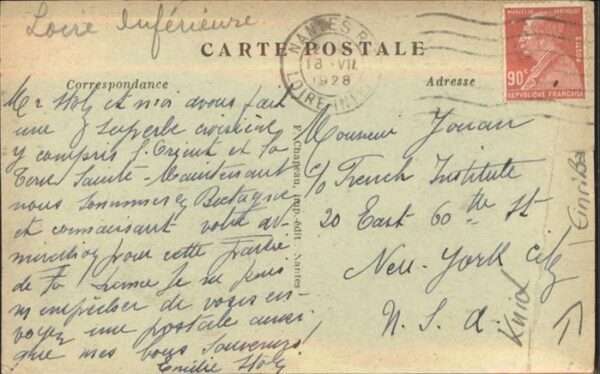 Loire Inférieure
CARTE POSTALE
NANTES
18 VII
1928
LOIRE INF
90c
POSTES
REPUBLIQUE FRANÇAISE
Correspondance
Adresse
Mr Holz et moi avons fait
une superbe croisière
y compris l'Orient et la
Terre Sainte - Maintenant
nous sommes en Bretagne
et connaissant votre ad-
miration pour cette partie
de la je ne puis
m'empêcher de vous en-
voyer une postale avec
mes bons souvenirs!
Emilie Holz
F. Chapeau, Imp.-Edit. Nantes
Monsieur
c/o French Institute
20 East 60th St
New-York City
U. S. A.